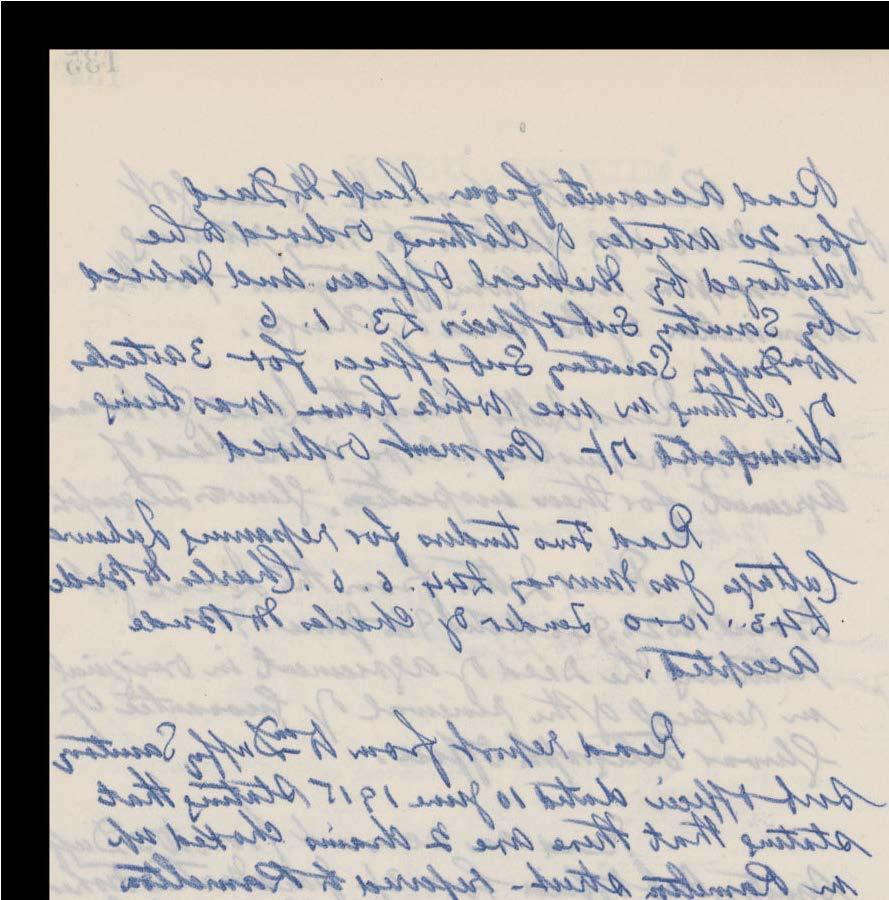 135
Read accounts from Hugh McDaed
for 20 articles of Clothing Ordered to be
destroyed by Medical Officer and Valued
by Sanitary Sub Officer £3. 1. 6
Wm Duffy Sanitary Sub Officer for 3 articles
of Clothing in use while house was being
disinfected 17/- Payment Ordered
Read two tenders for repairing Laboure
Cottage Jas Murray £44. 6. 6. Charles McBride
£43. 10 - 0 Tender of Charles McBride
accepted.
Read report from Wm Duffy Sanitary
Sub Officer dated 10 June 1915 Stating that
stating that there are 2 drains choked up
in Ramelton street - referred to Ramelton